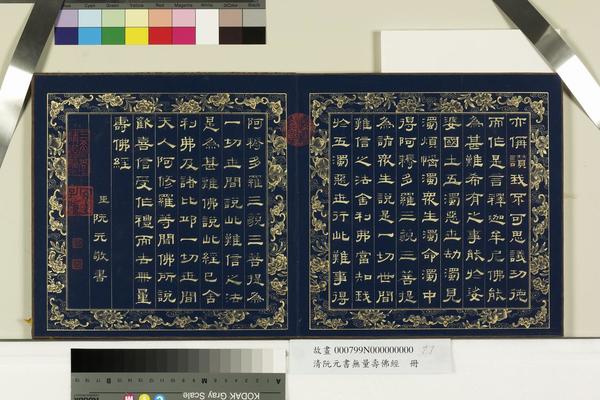 亦稱讚我不可思議功德
而作是言釋迦牟尼佛能
為甚難希有之事能於娑
婆國土五濁惡世劫濁見
濁煩惱濁眾生濁命濁中
得阿耨多羅三藐三菩提
為諸眾生說是一切世間
難信之法舍利弗當知我
於五濁惡世行此難事得
阿耨多羅三藐三菩提為
一切世間說此難信之法
是為甚難佛說此經已舍
利弗及諸比邱一切世間
天人阿修羅等聞佛所說
歡喜信受作禮而去無量
壽佛經
臣阮元敬書
故畫 000799N000000000
清阮元書無量壽佛經 冊
KODAK Gray Scale